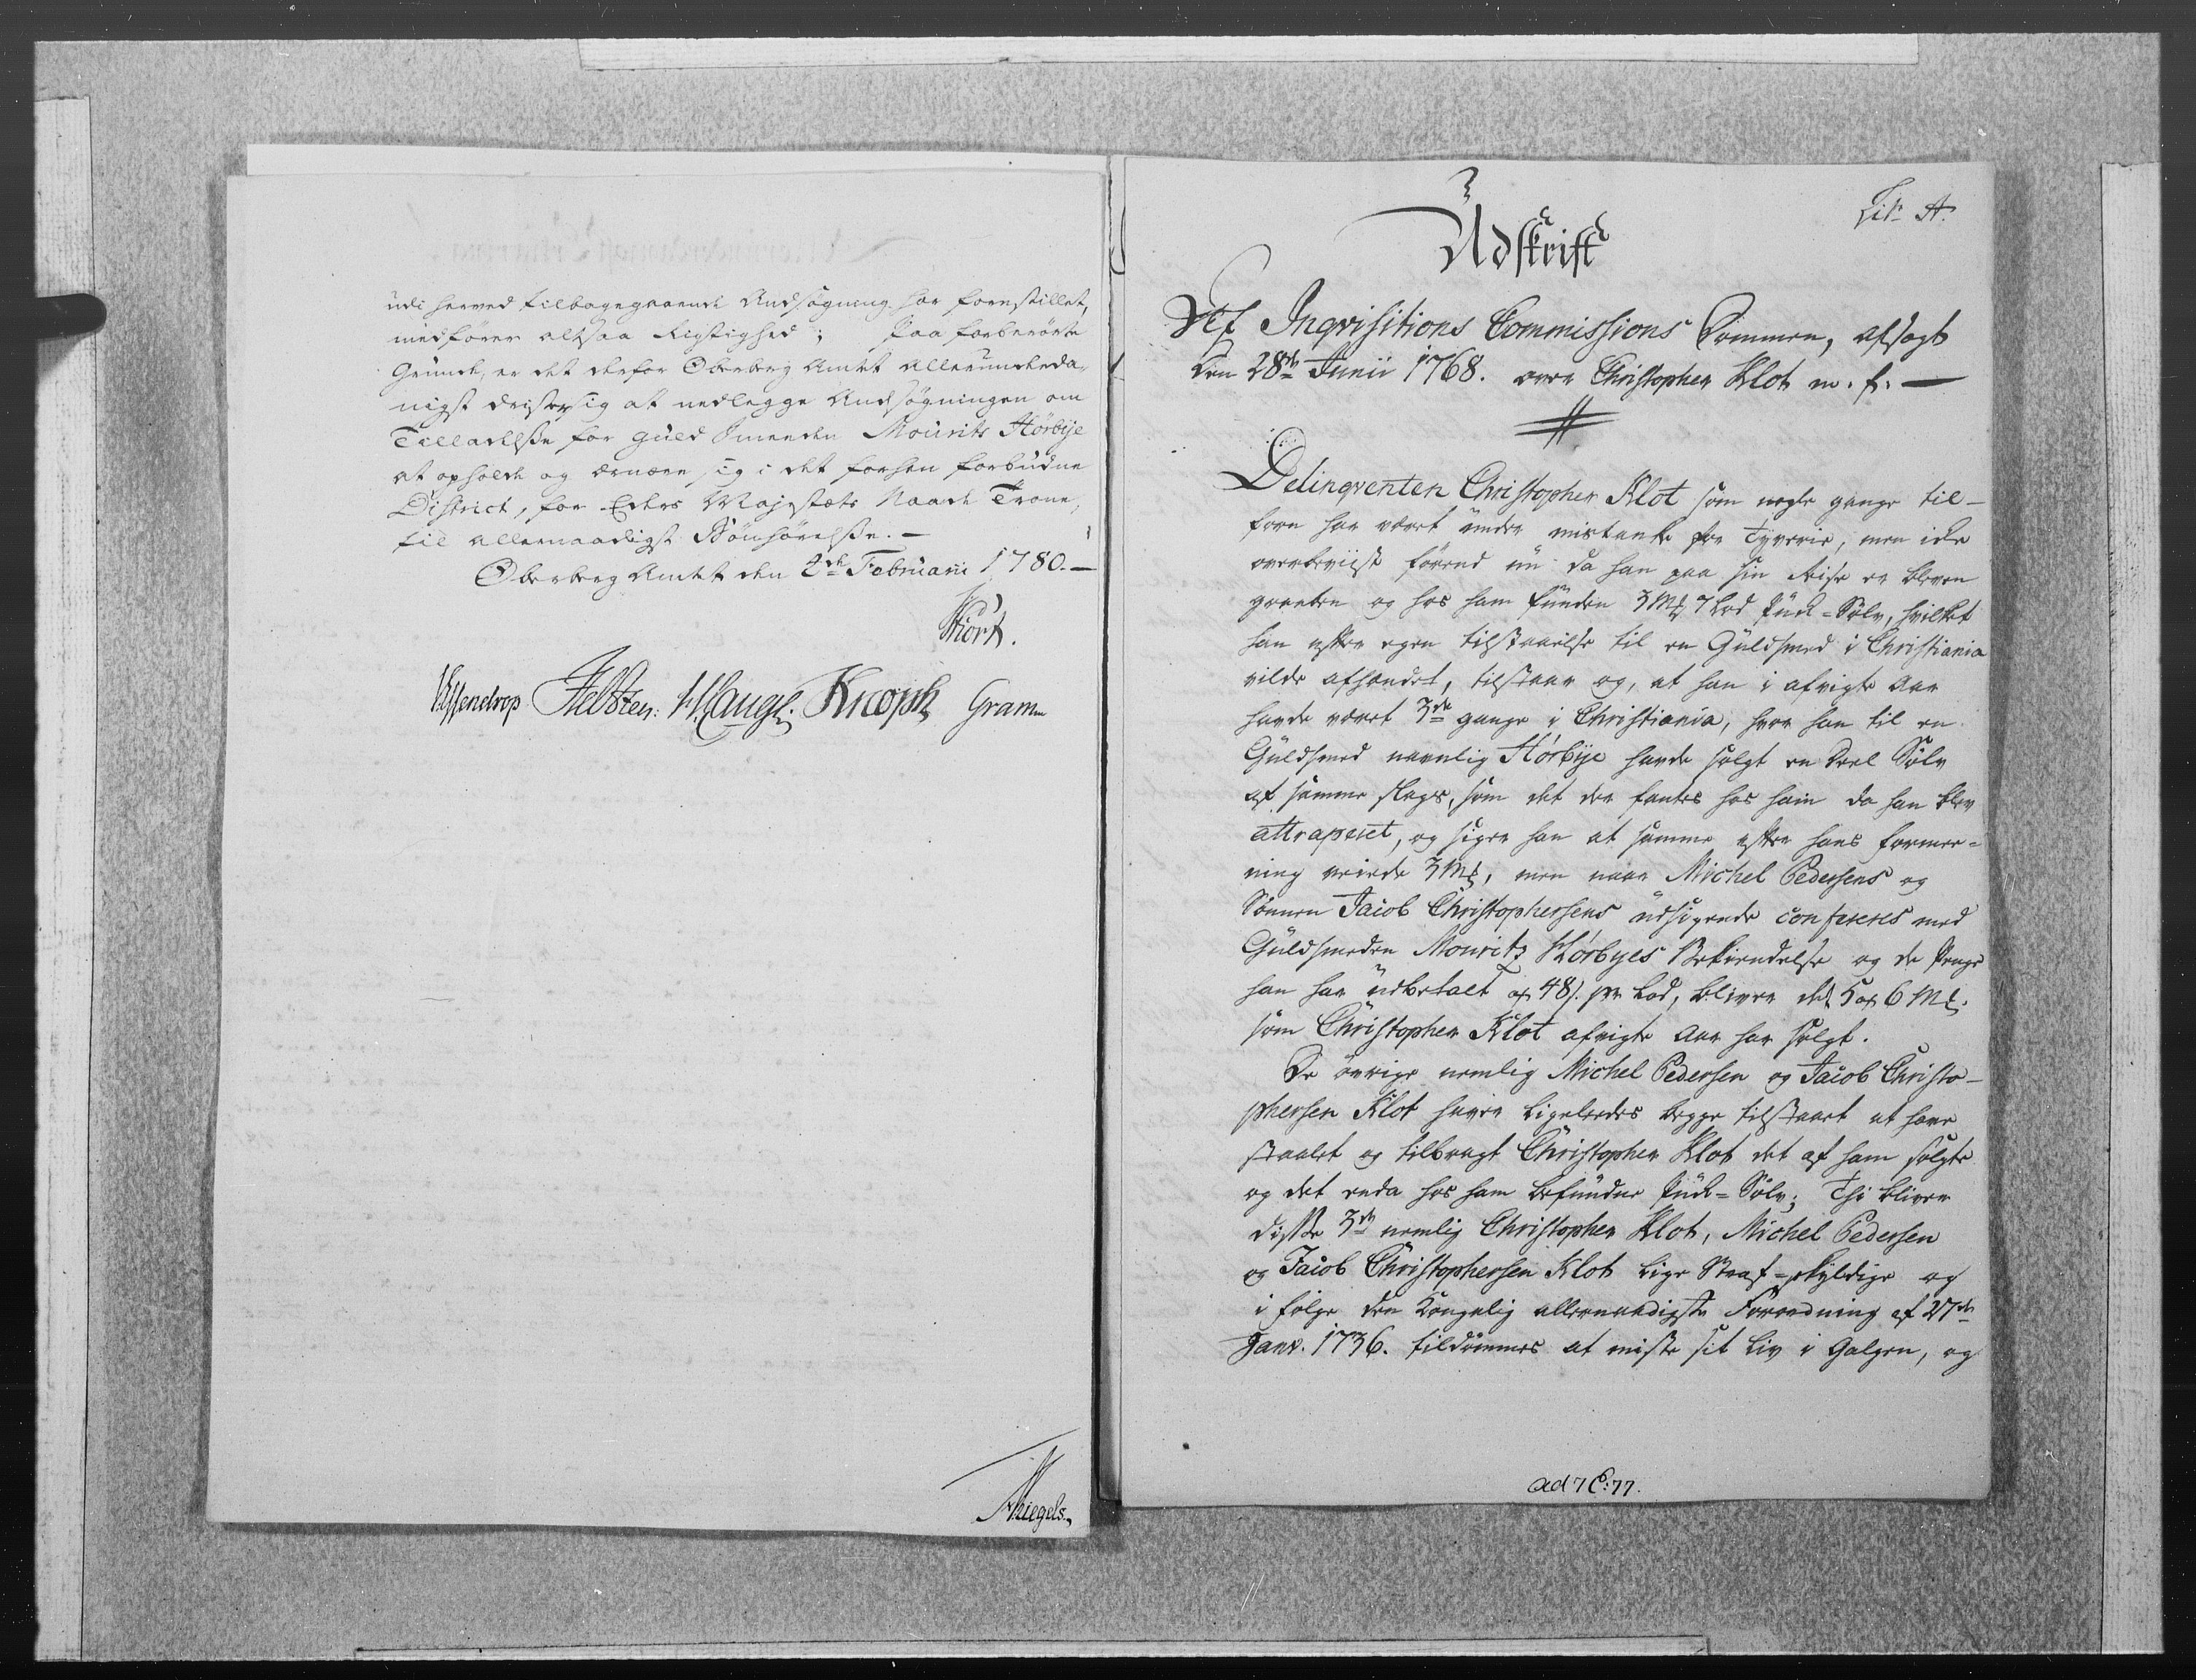 udi herved tilbagegaaende Ansøgning har forestillet,
medfører altsaa Rigtighed; Paa forberørte
Grunde, er det derfor Oberberg Amtet allerunderda-
nigst drister sig at nedlegge Ansøgningen om
Tilladelse for Guldsmeden Mourits Hørbye
at opholde og ærnære sig i det forhen forbudne
District, for Eders Majestæts Naade Trone,
til allernaadigst Bønhørelse. —
Oberberg Amtet den 2de Februarii 1780. —
Hiort.
Essendrop Heltzen: Knoph Gram
Lit: A.
Udskrift
Af Inqvisitions Commissions Dommen, afsagt
den 28de Junii 1768. over Christopher Klot m. fl. —
Delinqventen Christopher Klot som nogle gange til-
forn har været under mistanke for Tyverie, men ike
overbeviist førend nu da han paa sin Reise er bleven
greben og hos ham funden 3 Mk 7 Lod Puk-Sølv, hvilket
han efter egen tilstaaelse til en Guldsmed i Christiania
vilde afhændet, tilstaar og, at han i afvigte Aar
havde været 3de gange i Christiania, hvor han til en
Guldsmed navnlig Hørbye havde solgt en Deel Sølv
af samme slags, som det der fantes hos ham da han blev
attraperet, og siger han at samme efter hans formee-
ning veiede 3 Mk, men naar Michel Pedersens og
Sønnen Jacob Christophersens udsigende confereres med
Guldsmeden Mouritz Hørbyes Bekiendelse og de Penge
han har udbetalt a 48 s. pr Lod, bliver det 5 a 6 Mk.
som Christopher Klot afvigte Aar har solgt.
De øvrige nemlig Michel Pedersen og Jacob Christo-
phersen Klot haver ligeledes begge tilstaaet at have
staalet og tilbragt Christopher Klot det af ham solgte
og det enda hos ham befundne Puk-Sølv; Thi bliver
disse 3de nemlig Christopher Klot, Michel Pedersen
og Jacob Christophersen Klot lige Straf-skyldige og
i følge den Kongelig allernaadigste Forordning af 27de
Janv. 1736. tildømmes at miste sit Liv i Galgen, og
ad 7 C:77.